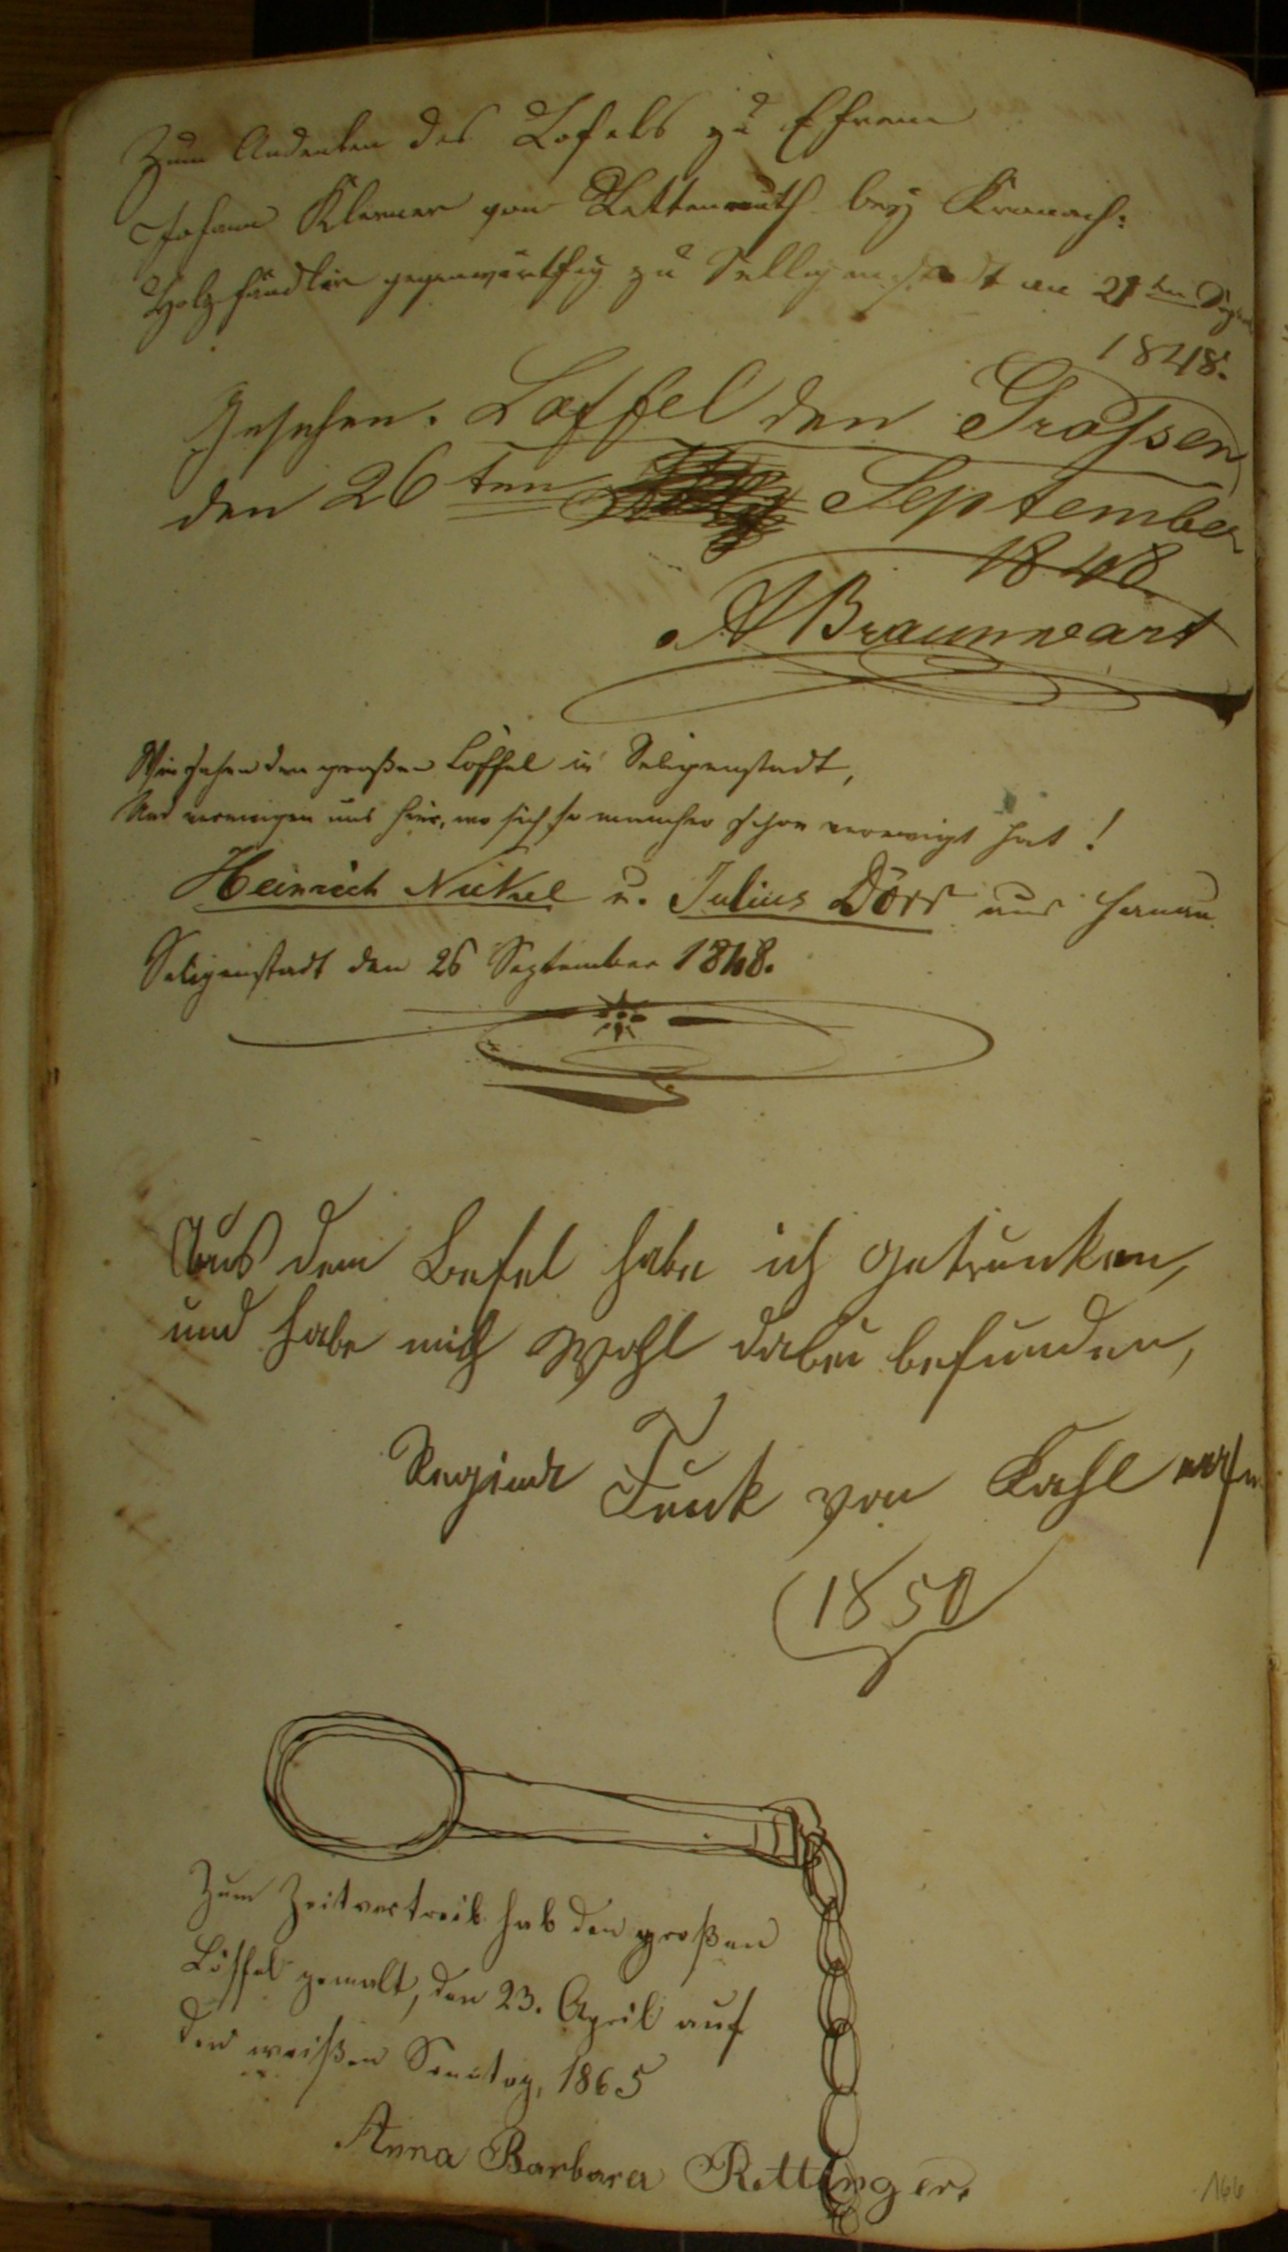 Zum Andenken des Lofels zu Ehren
Johann Klerner von Rettenreuth bey Kronach:
Holzhändler gegenwärthig zuSelligenstadt am 21ten
1848.
Gesehen. Löffel den Grossen
den 26ten September
1848.
A Braunwart
Wir sahen den großen Löffel in Seligenstadt,
Und verewigen uns hier, wo sich so mancher schon verewigt hat!
Heinrich Nickel u. Julius Dörr aus Hanau
Seligenstadt den 26 September 1848.
Aus dem Lefel habe ich getrunken,
und habe mich wohl dabei befunden,
Funk von Kahl
1850
Zum Zeitvertreib hab den großen
Löffel gemalt, den 23. April auf
den weißen Sonntag, 1865
Anna Barbara Rettinger.
166